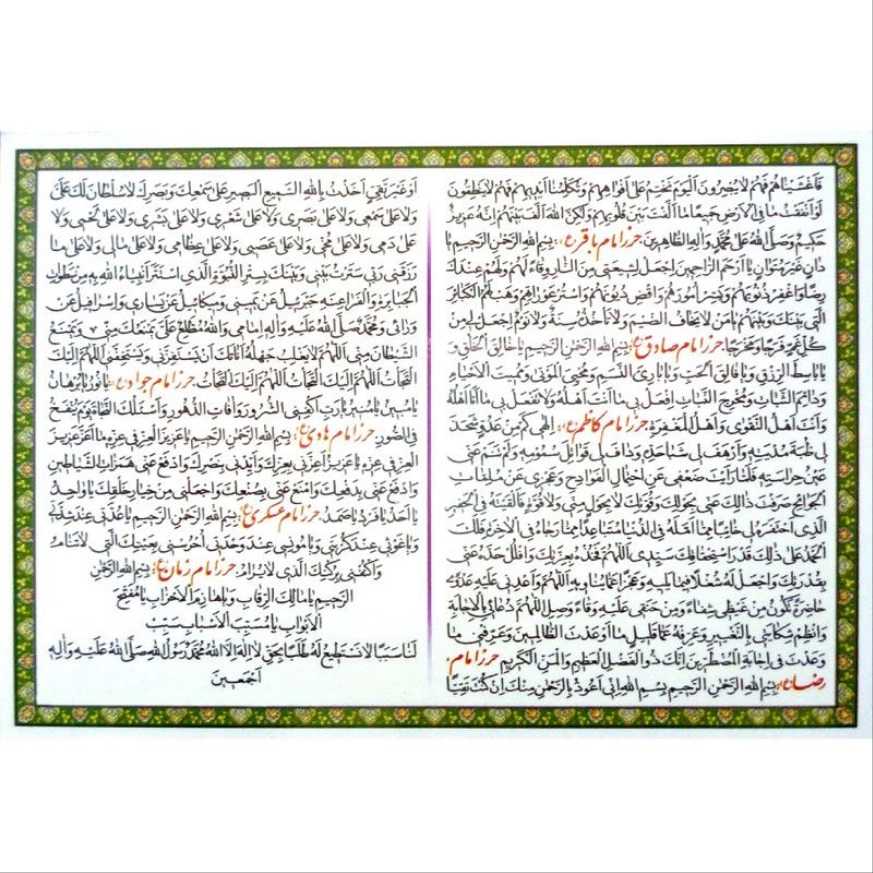 فَاَغْشَيْناهُمْ فَهُمْ لا يُبْصِرُونَ اَلْيَوْمَ نَخْتِمُ عَلى اَفْواهِهِمْ وَتُكَلِّمُنا اَيْديهِمْ فَهُمْ لا يَنْطِقُونَ
لَوْ اَنْفَقْتَ ما فِي الْاَرْضِ جَميعاً ما اَلَّفْتَ بَيْنَ قُلُوبِهِمْ وَلٰكِنَّ اللهَ اَلَّفَ بَيْنَهُمْ اِنَّهُ عَزيزٌ
حَكيمٌ وَصَلَّى اللهُ عَلى مُحَمَّدٍ وَالِهِ الطّاهِرينَ حرز امام باقر(ع): بِسْمِ اللهِ الرَّحْمٰنِ الرَّحيمِ يا
دانٍ غَيْرَ مُتَوانٍ يا اَرْحَمَ الرّاحِمينَ اِجْعَلْ لِشيعَتي مِنَ النّارِ وِقاءً لَهُمْ وَلَهُمْ عِنْدَكَ
رِضاً وَاغْفِرْ ذُنُوبَهُمْ وَيَسِّرْ اُمُورَهُمْ وَاقْضِ دُيُونَهُمْ وَاسْتُرْ عَوْراتِهِمْ وَهَبْ لَهُمُ الْكَبائِرَ
الَّتي بَيْنَكَ وَبَيْنَهُمْ يا مَنْ لا يَخافُ الضَّيْمَ وَلا تَأْخُذُهُ سِنَةٌ وَلا نَوْمٌ اِجْعَلْ لي مِنْ
كُلِّ غَمٍّ فَرَجاً وَمَخْرَجاً حرز امام صادق(ع): بِسْمِ اللهِ الرَّحْمٰنِ الرَّحيمِ يا خالِقَ الْخَلْقِ وَ
يا باسِطَ الرِّزْقِ وَيا فالِقَ الْحَبِّ وَيا بارِئَ النَّسَمِ وَمُحْيِيَ الْمَوْتى وَمُميتَ الْاَحْياءِ
وَدائِمَ الثَّباتِ وَمُخْرِجَ النَّباتِ اِفْعَلْ بي ما اَنْتَ اَهْلُهُ وَلا تَفْعَلْ بي ما اَنَا اَهْلُهُ
وَاَنْتَ اَهْلُ التَّقْوى وَاَهْلُ الْمَغْفِرَةِ حرز امام کاظم(ع): اِلٰهي كَمْ مِنْ عَدُوٍّ شَحَذَ
لي ظُبَةَ مُدْيَتِهِ وَاَرْهَفَ لي شَباحَدِّهِ وَدافَ لي قَواتِلَ سُمُومِهِ وَلَمْ تَنَمْ عَنّي
عَيْنُ حِراسَتِهِ فَلَمّا رَاَيْتَ ضَعْفي عَنِ احْتِمالِ الْفَوادِحِ وَعَجْزي عَنْ مُلِمّاتِ
الْجَوائِحِ صَرَفْتَ ذالِكَ عَنّي بِحَوْلِكَ وَقُوَّتِكَ لا بِحَوْلٍ مِنّي وَلا قُوَّةٍ فَاَلْقَيْتَهُ فِي الْحَفيرِ
الَّذي احْتَفَرَهُ لي خائِباً مِمّا اَمَّلَهُ فِي الدُّنْيا مُتَباعِداً مِمّا رَجاهُ فِي الْاخِرَةِ فَلَكَ
الْحَمْدُ عَلى ذٰلِكَ قَدْرَ اسْتِحْقاقِكَ سَيِّدي اَللّٰهُمَّ فَخُذْهُ بِعِزَّتِكَ وَافْلُلْ حَدَّهُ عَنّي
بِقُدْرَتِكَ وَاجْعَلْ لَهُ شُغْلاً فيما يَليهِ وَعَجْزاً عَمّا يُناويهِ اَللّٰهُمَّ وَاَعْدِني عَلَيْهِ عَدْوىً
حاضِرَةً تَكُونُ مِنْ غَيْظي شِفاءً وَمِنْ حَنَقي عَلَيْهِ وَقاءً وَصِلِ اللّٰهُمَّ دُعائي بِالْاِجابَةِ
وَانْظِمْ شِكايَتي بِالتَّغْييرِ وَعَرِّفْهُ عَمّا قَليلٍ ما اَوْعَدْتَ الظّالِمينَ وَعَرِّفْني ما
وَعَدْتَ في اِجابَةِ الْمُضْطَرّينَ اِنَّكَ ذُو الْفَضْلِ الْعَظيمِ وَالْمَنِّ الْكَريمِ حرز امام
رضا(ع): بِسْمِ اللهِ الرَّحْمٰنِ الرَّحيمِ بِسْمِ اللهِ اِنّي اَعُوذُ بِالرَّحْمٰنِ مِنْكَ اِنْ كُنْتَ تَقِيّاً
اَوْ غَيْرَ تَقِيٍّ اَخَذْتُ بِاللهِ السَّميعِ الْبَصيرِ عَلى سَمْعِكَ وَبَصَرِكَ لا سُلْطانَ لَكَ عَلَيَّ
وَلا عَلى سَمْعي وَلا عَلى بَصَري وَلا عَلى شَعْري وَلا عَلى بَشَري وَلا عَلى لَحْمي وَلا
عَلى دَمي وَلا عَلى مُخّي وَلا عَلى عَصَبي وَلا عَلى عِظامي وَلا عَلى مالي وَلا عَلى ما
رَزَقَني رَبّي سَتَرْتُ بَيْني وَبَيْنَكَ بِسِتْرِ النُّبُوَّةِ الَّذي اسْتَتَرَ اَنْبِياءُ اللهِ بِهِ مِنْ سَطَواتِ
الْجَبابِرَةِ وَالْفَراعِنَةِ جَبْرَئيلُ عَنْ يَميني وَميكائيلُ عَنْ يَساري وَاِسْرافيلُ عَنْ
وَرائي وَمُحَمَّدٌ صَلَّى اللهُ عَلَيْهِ وَالِهِ اَمامي وَاللهُ مُطَّلِعٌ عَلَيَّ يَمْنَعُكَ مِنّي وَيَمْنَعُ
الشَّيْطانَ مِنّي اَللّٰهُمَّ لا يَغْلِبْ جَهْلُهُ اَناتَكَ اَنْ يَسْتَفِزَّني وَيَسْتَخِفَّني اَللّٰهُمَّ اِلَيْكَ
الْتَجَأْتُ اَللّٰهُمَّ اِلَيْكَ الْتَجَأْتُ اَللّٰهُمَّ اِلَيْكَ الْتَجَأْتُ حرز امام جواد(ع): يا نُورُ يا بُرْهانُ
يا مُبينُ يا مُنيرُ يا رَبِّ اكْفِنِي الشُّرُورَ وَافاتِ الدُّهُورِ وَاَسْئَلُكَ النَّجاةَ يَوْمَ يُنْفَخُ
فِي الصُّورِ حرز امام هادی(ع): بِسْمِ اللهِ الرَّحْمٰنِ الرَّحيمِ يا عَزيزَ الْعِزِّ في عِزِّهِ ما اَعَزَّ عَزيزَ
الْعِزِّ في عِزِّهِ يا عَزيزُ اَعِزَّني بِعِزِّكَ وَاَيِّدْني بِنَصْرِكَ وَادْفَعْ عَنّي هَمَزاتِ الشَّياطينِ
وَادْفَعْ عَنّي بِدَفْعِكَ وَامْنَعْ عَنّي بِصُنْعِكَ وَاجْعَلْني مِنْ خِيارِ خَلْقِكَ يا واحِدُ
يا اَحَدُ يا فَرْدُ يا صَمَدُ حرز امام عسکری(ع): بِسْمِ اللهِ الرَّحْمٰنِ الرَّحيمِ يا عُدَّتي عِنْدَ شِدَّتي
وَيا غَوْثي عِنْدَ كُرْبَتي وَيا مُونِسي عِنْدَ وَحْدَتي اُحْرُسْني بِعَيْنِكَ الَّتي لا تَنامُ
وَاكْنُفْني بِرُكْنِكَ الَّذي لا يُرامُ حرز امام زمان(ع): بِسْمِ اللهِ الرَّحْمٰنِ
الرَّحيمِ يا مالِكَ الرِّقابِ وَيا هازِمَ الْاَحْزابِ يا مُفَتِّحَ
الْاَبْوابِ يا مُسَبِّبَ الْاَسْبابِ سَبِّبْ
لَنا سَبَباً لا نَسْتَطيعُ لَهُ طَلَباً بِحَقِّ لا اِلٰهَ اِلَّا اللهُ مُحَمَّدٌ رَسُولُ اللهِ صَلَّى اللهُ عَلَيْهِ وَالِهِ
اَجْمَعينَ